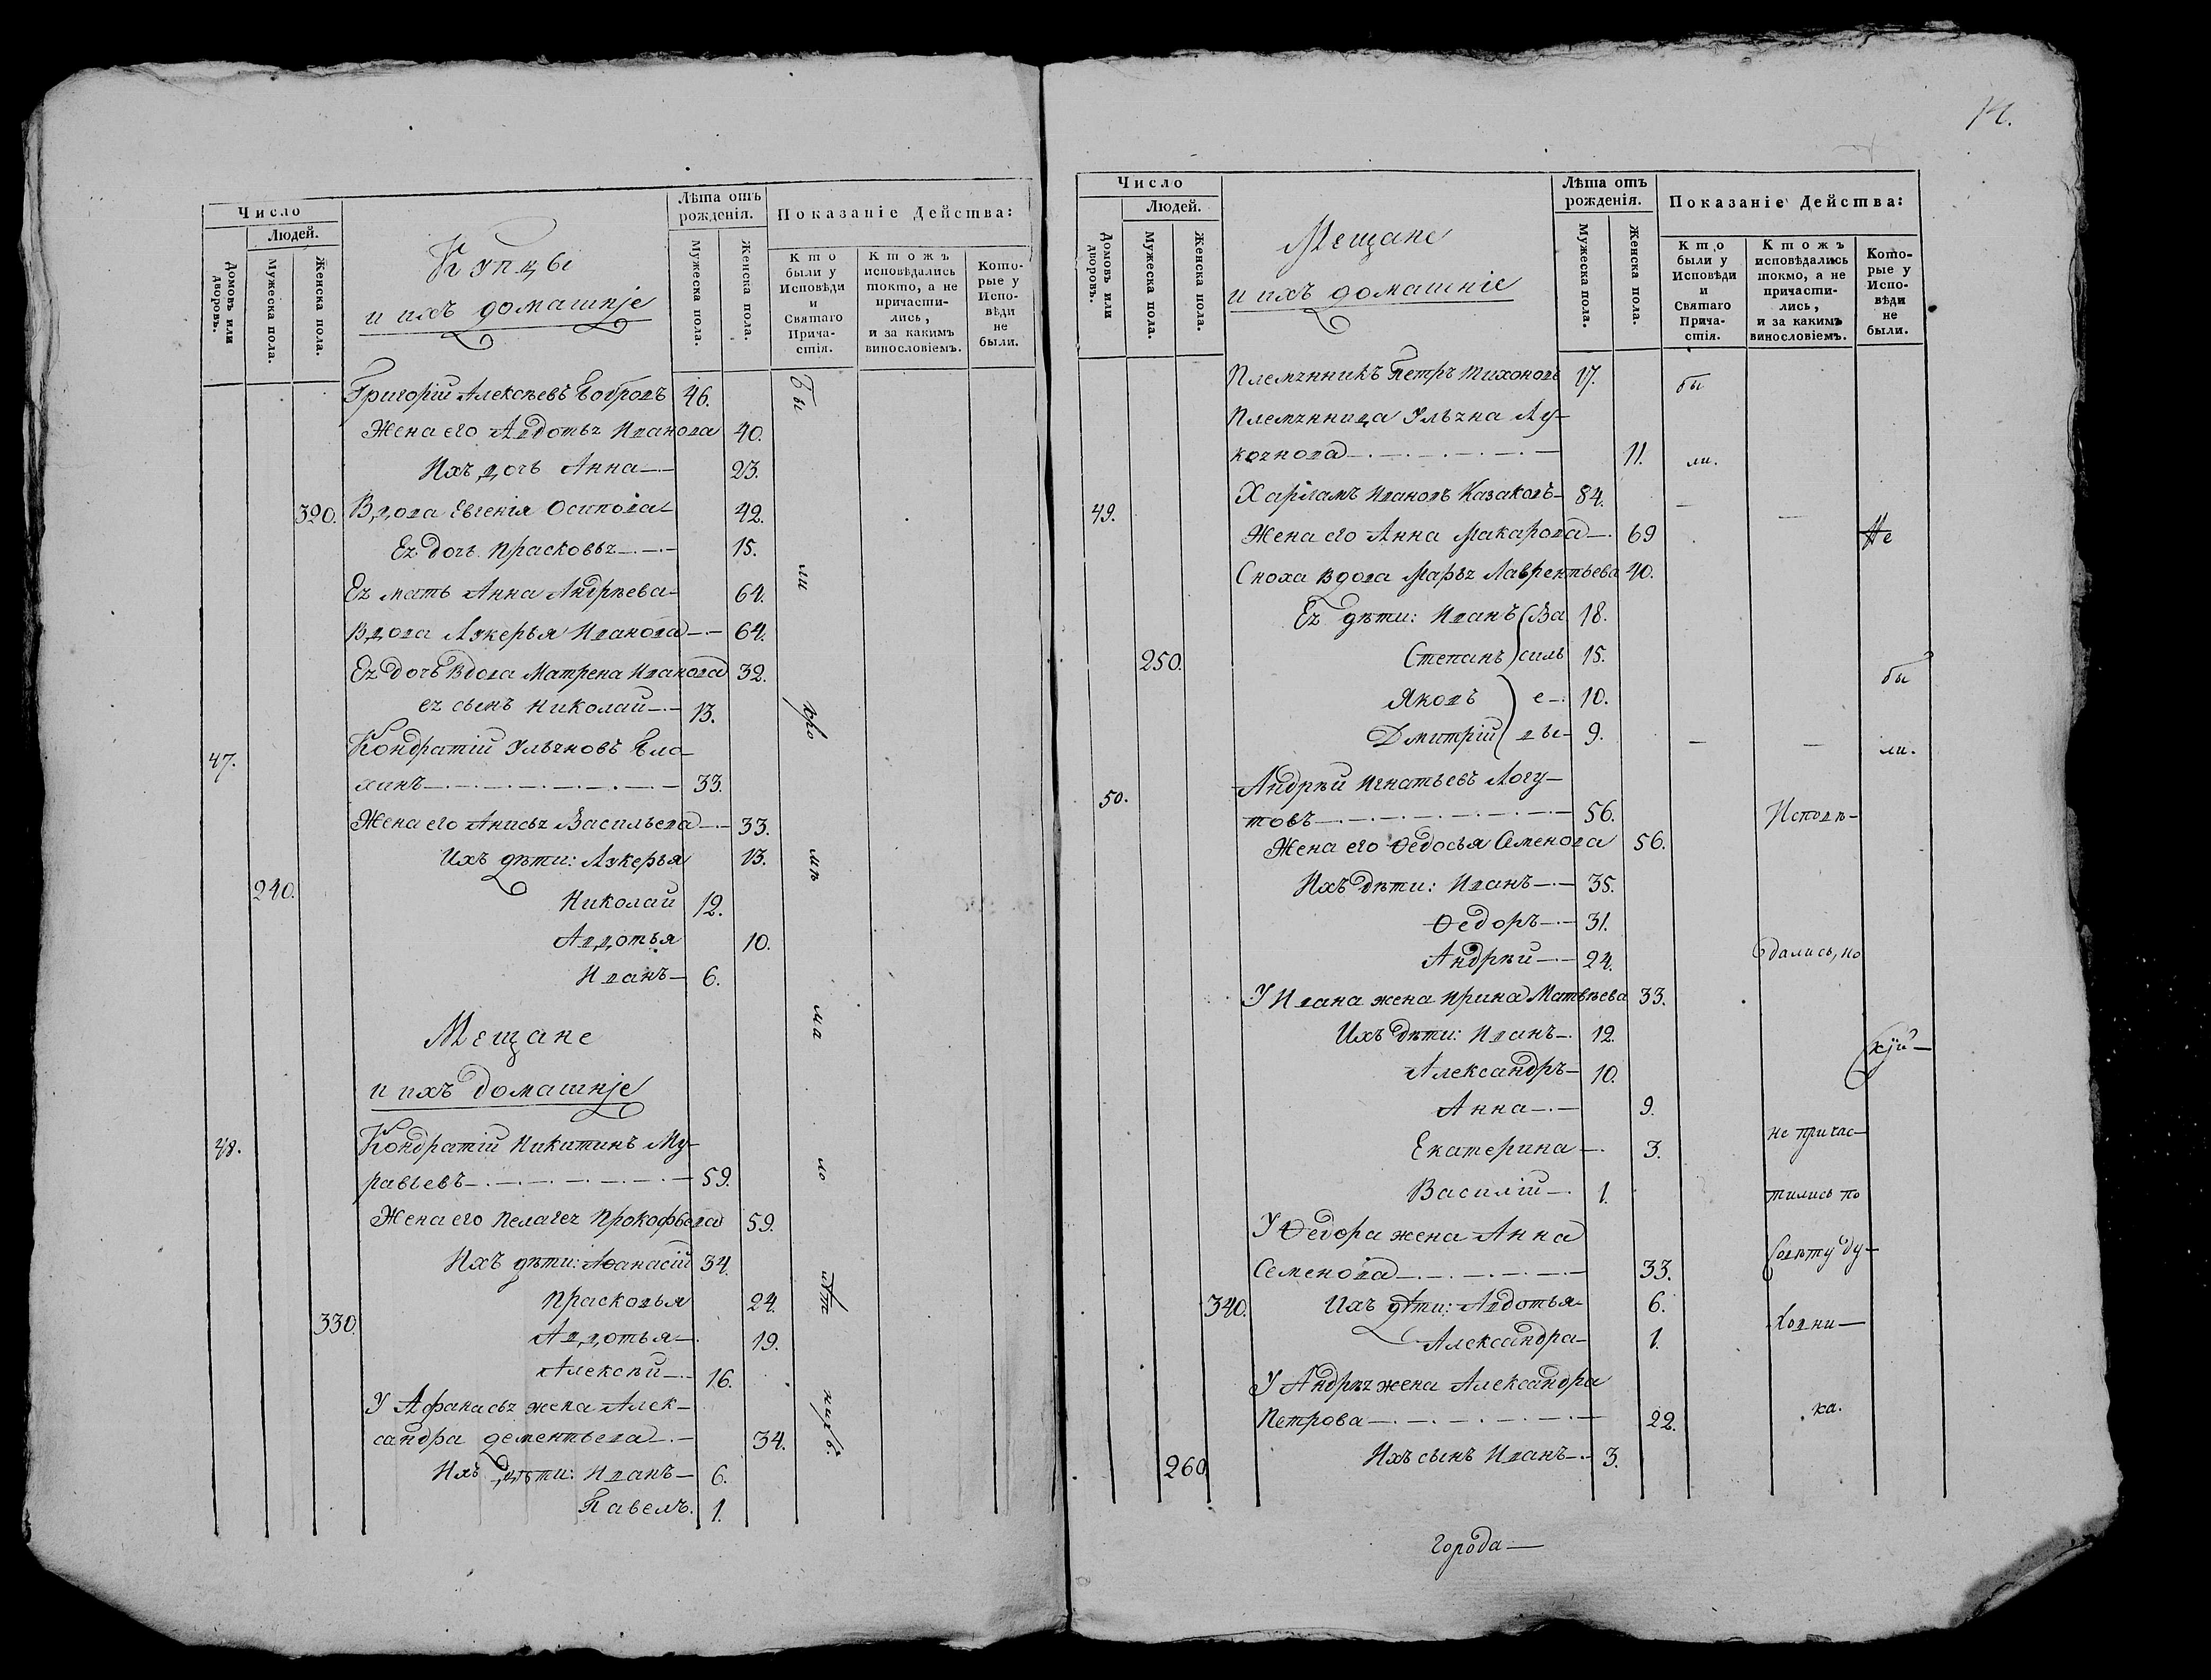 14.
Число
Людей.
Домовъ или дворовъ.
Мужеска пола.
Женска пола.
Купцы
и ихъ домашніе
Лѣта отъ рожденія.
Мужеска пола.
Женска пола.
Показаніе Действа:
Кто были у Исповѣди и Святаго Прича-стія.
Ктожъ исповѣдались токто, а не причасти-лись, и за какимъ винословіемъ.
Кото-рые у Испо-вѣди не были.
Григорій Алексѣевъ Бобровъ 46.
Жена его Авдотья Иванова 40.
Ихъ дочь Анна 23.
320. Вдова Евгенія Осипова 42.
Ея дочь Прасковья 15.
Ея мать Анна Андрѣева 64.
Вдова Лукерья Иванова 64.
Ея дочь вдова Матрена Иванова 32.
ея сынъ Николай 13.
47. Кондратій Ульяновъ Ела-
ханъ 33.
Жена его Анисья Васильева 33.
Ихъ дѣти: Лукерья 13.
240. Николай 12.
Авдотья 10.
Иванъ 6.
Мещане
и ихъ домашніе
48. Кондратій Никитинъ Му-
равьевъ 59.
Жена его Пелагея Прокофьева 59.
Ихъ дѣти: Аѳанасій 34.
Прасковья 24.
330. Авдотья 19.
Алексѣй 16.
У Афанасья жена Алек-
сандра Дементьева 34.
Ихъ дѣти: Иванъ 6.
Павелъ. 1.
Бы
ли
кро
мѣ
ма
ло
лѣт
ныхъ.
Число
Людей.
Домовъ или дворовъ.
Мужеска пола.
Женска пола.
Мещане
и ихъ домашніе
Лѣта отъ рожденія.
Мужеска пола.
Женска пола.
Показаніе Действа:
Кто были у Исповѣди и Святаго Прича-стія.
Ктожъ исповѣдались токмо, а не причасти-лись, и за какимъ винословіемъ.
Кото-рые у Испо-вѣди не были.
Племянникъ Петръ Тихоновъ 17. бы
Племянница Ульяна Лу-
коянова 11. ли.
49. Харламъ Ивановъ Казаковъ 84.
Жена его Анна Макарова 69 Не
Сноха вдова Марья Лаврентьева 40.
Ея дѣти: Иванъ Ва 18.
250. Степанъ силь 15.
бы
Яковъ е 10.
Дмитрій вы 9. ли.
50. Андрѣй Игнатьевъ Логу-
товъ 56. Исповѣ-
Жена его Ѳедосья Семенова 56.
Ихъ дѣти: Иванъ 35.
Ѳедоръ 31.
Андрѣй 24. дались, но
У Ивана жена Ирина Матвѣева 33.
Ихъ дѣти: Иванъ 12.
Александръ 10.
Анна 9.
Екатерина 3. не причас-
Василій 1. тились по
У Ѳедора жена Анна
Семенова 33. совѣту ду-
340. Ихъ дѣти: Авдотья 6. ховни-
Александра 1.
У Андрѣя жена Александра
Петрова 22. ка.
260 Ихъ сынъ Иванъ 3.
города